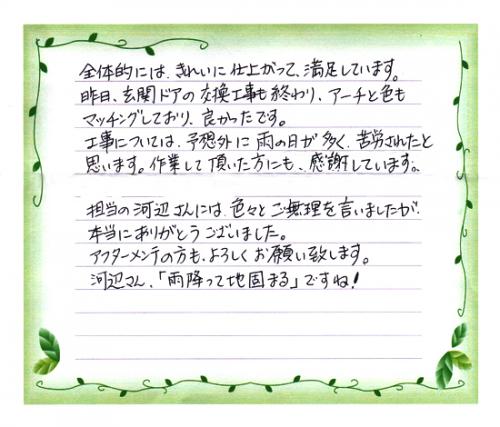 全体的には、きれいに仕上がって、満足しています。
昨日、玄関ドアの交換工事も終わり、アーチと色も
マッチングしており、良かったです。
工事については、予想外に雨の日が多く、苦労されたと
思います。作業して頂いた方にも、感謝しています。
担当の河辺さんには、色々とご無理を言いましたが、
本当にありがとうございました。
アフターメンテの方も、よろしくお願い致します。
河辺さん、「雨降って地固まる」ですね!